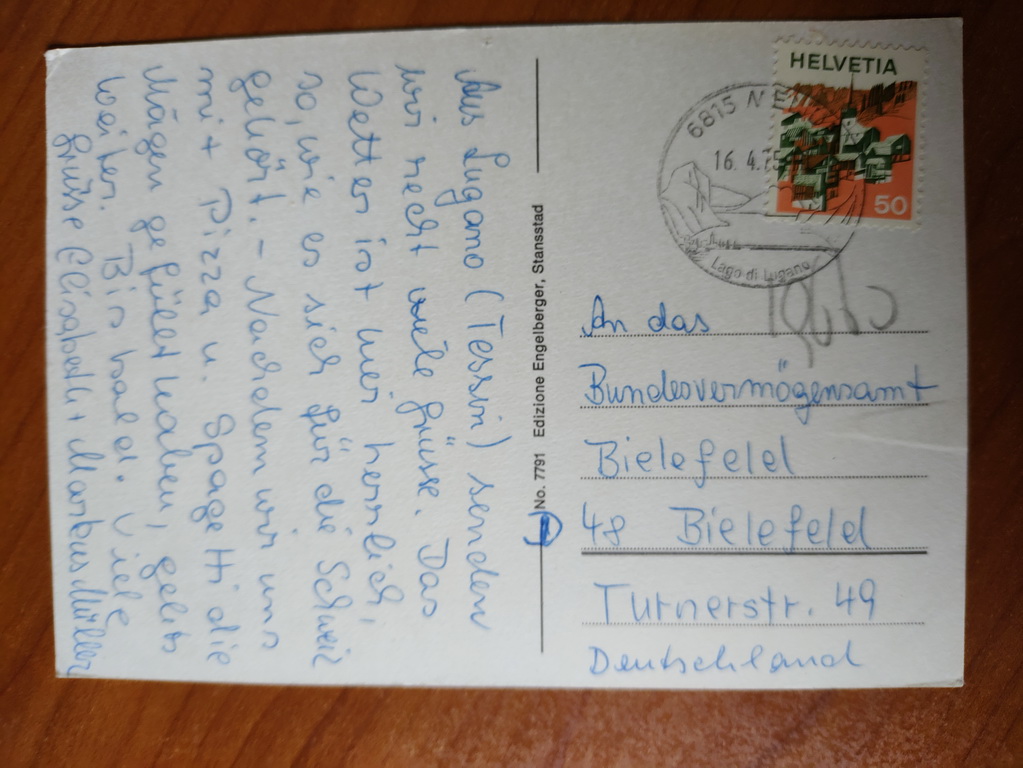 Aus Lugano (Tessin) senden
wir recht viele Grüsse. Das
Wetter ist hier herrlich,
so, wie es sich für die Schweiz
gehört. - Nachdem wir uns
mit Pizza u. Spagetti die
Mägen gefüllt haben, gehts
weiter. Bis bald. Viele
Grüsse Elisabeth + Markus Müller
No. 7791 Edizione Engelberger, Stansstad
HELVETIA
50
6815
16. 4. 75
Lago di Lugano
An das
Bundesvermögensamt
Bielefeld
48 Bielefeld
Turnerstr. 49
Deutschland